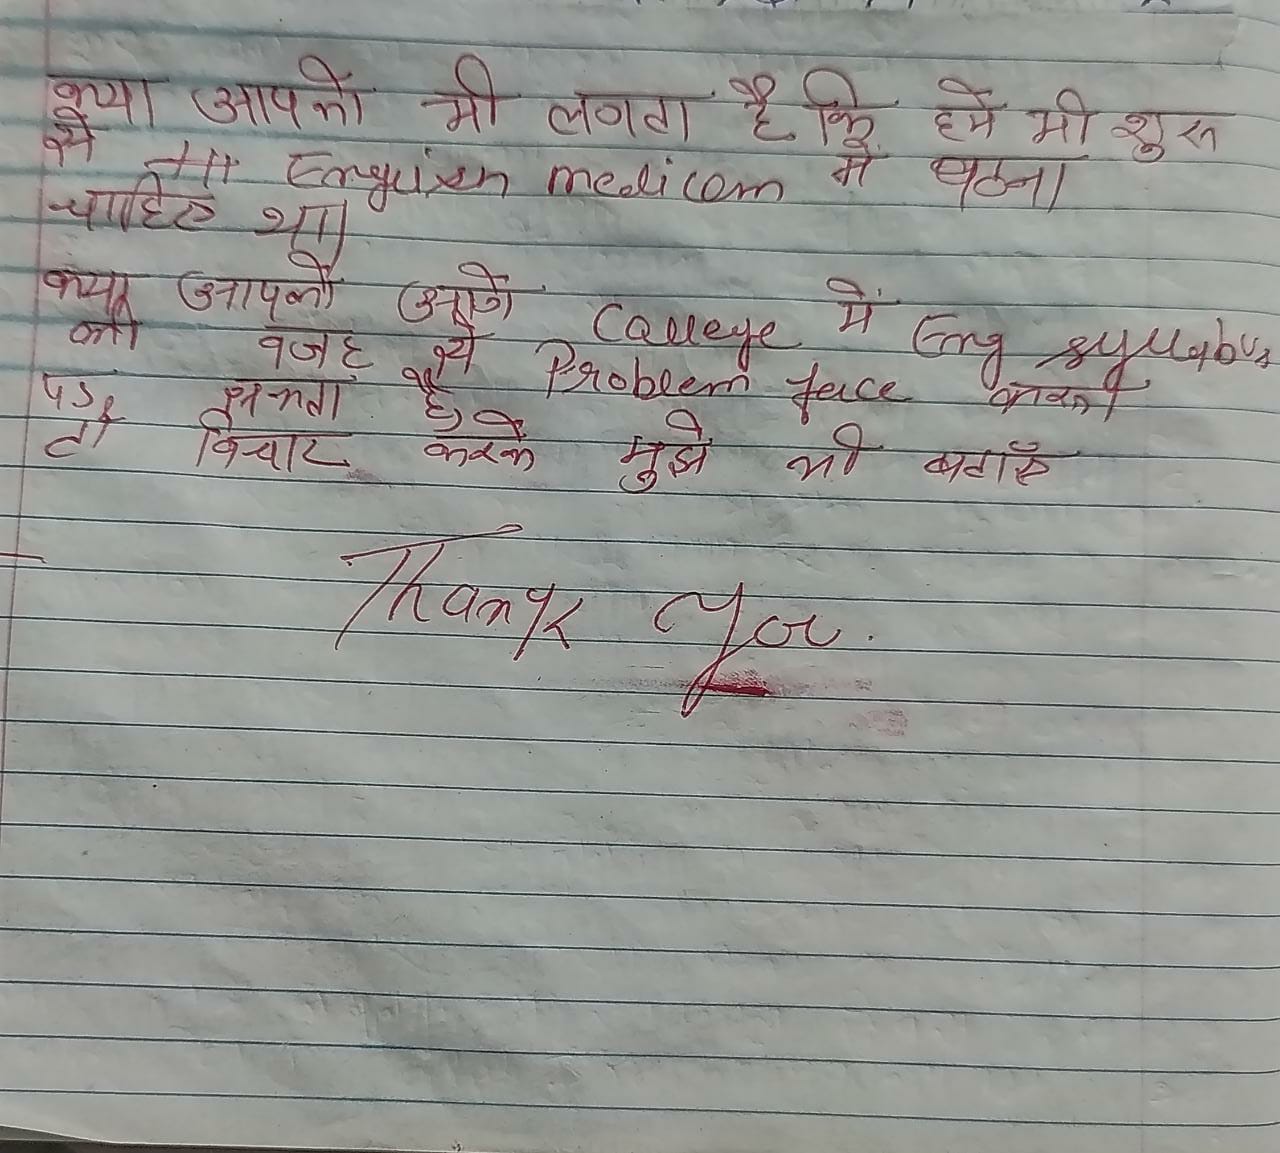 क्या आपको भी लगता है कि हमें भी शुरू
से English medium में पढना
चाहिए था।
क्या आपको आगे College में Eng syllabus
की वजह से Problem face करना
पड़ सकता है,
तो विचार करके मुझे भी बताएँ
Thank You.